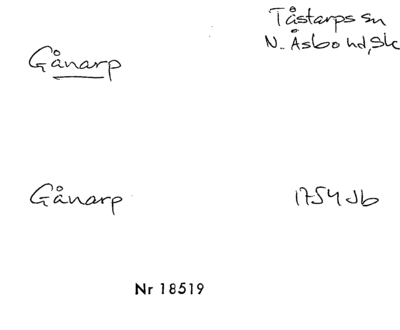 Tåstarps sn
N. Åsbo hd, Sk
Gånarp
Gånarp 1754 Jb
Nr 18519